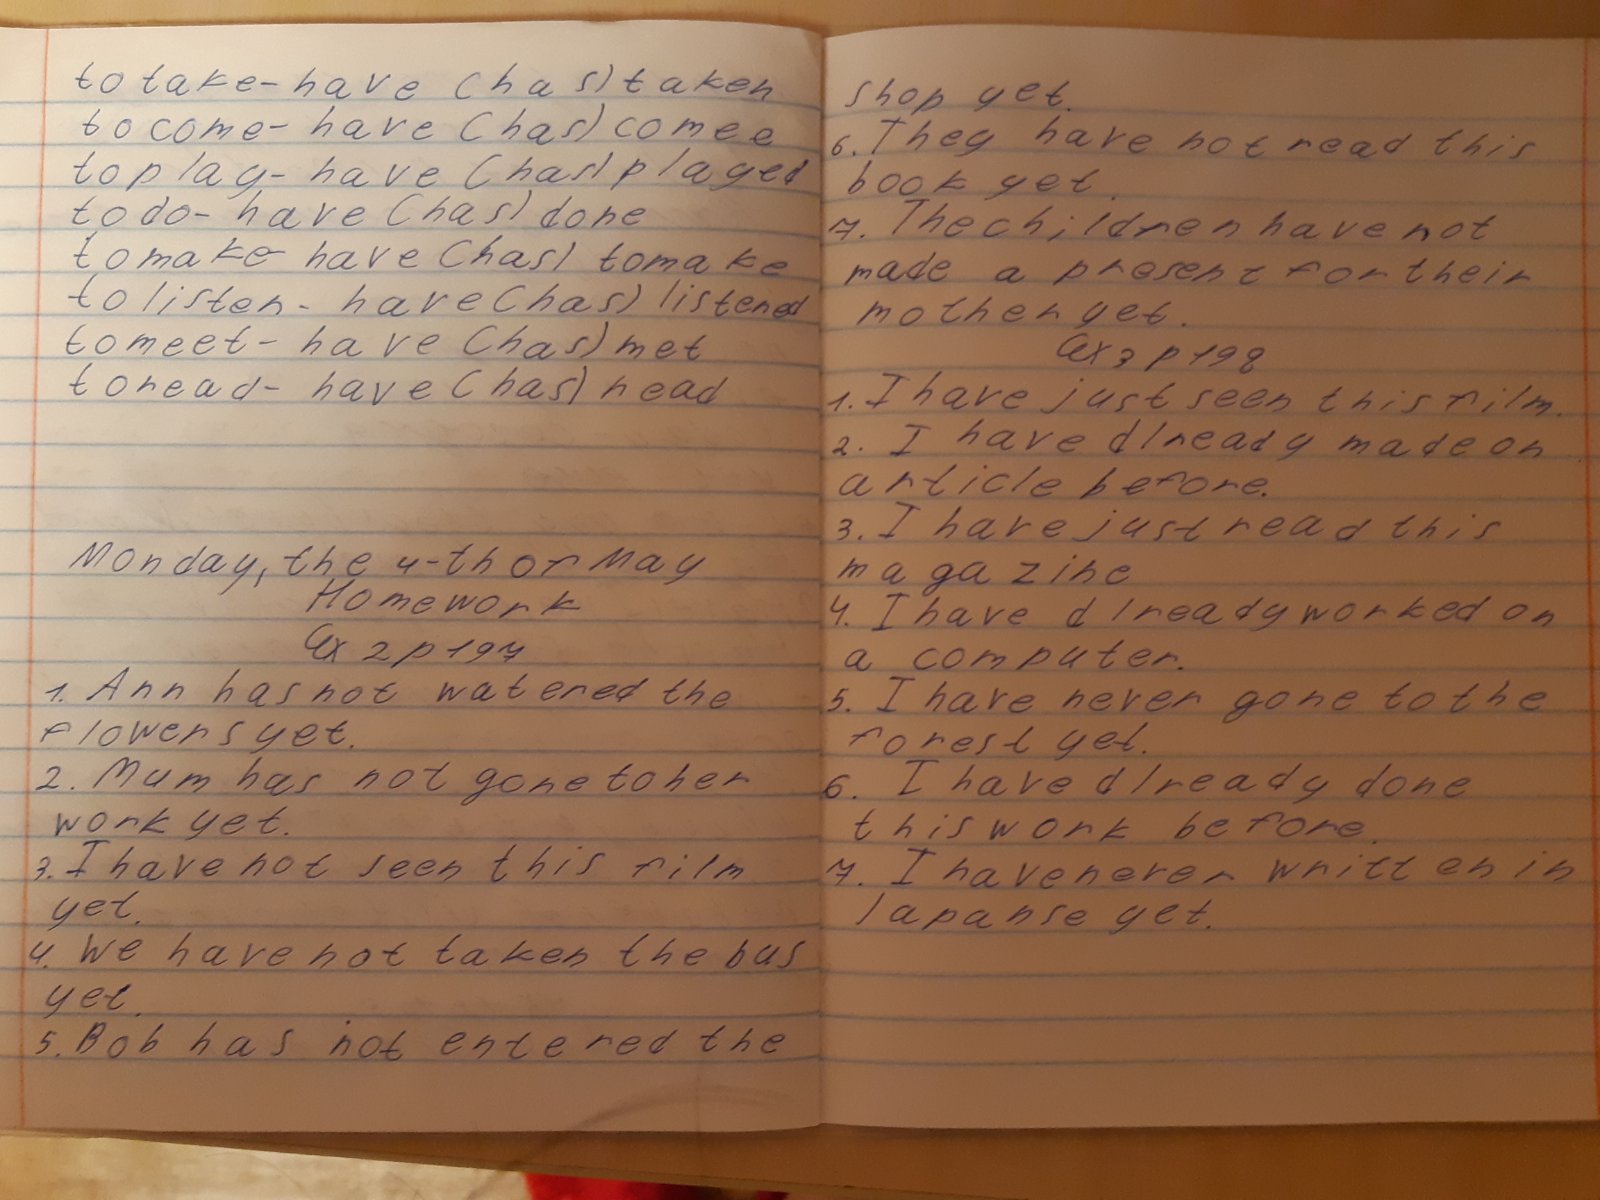 to take - have (has) taken
to come - have (has) comee
to play - have (has) played
to do - have (has) done
to make have (has) to make
to listen - have (has) listened
to meet - have (has) met
to read - have (has) read
Monday, the 4-th of May
Homework
Ex 2 p 197
1. Ann has not watered the
flowers yet.
2. Mum has not gone to her
work yet.
3. I have not seen this film
yet.
4. We have not taken the bus
yet.
5. Bob has not entered the
shop yet.
6. They have not read this
book yet.
7. The children have not
made a present for their
mother yet.
Ex 3 p 198
1. I have just seen this film.
2. I have already made on
article before.
3. I have just read this
magazine
4. I have already worked on
a computer.
5. I have never gone to the
forest yet.
6. I have already done
this work before.
7. I have never written in
Iapanse yet.